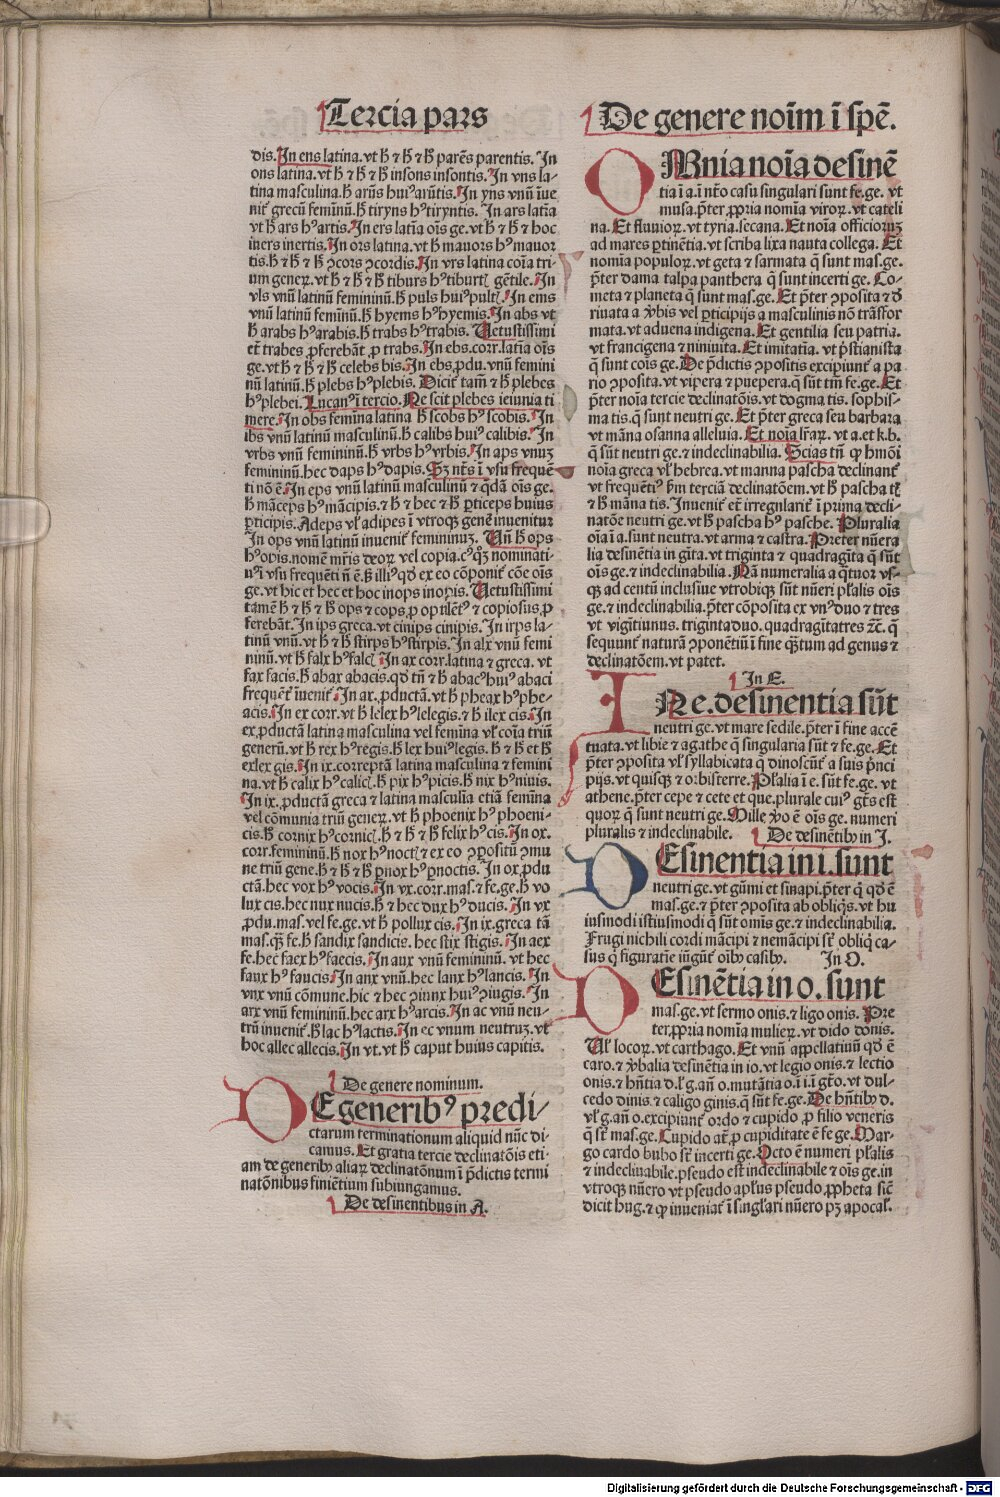 Tercia pars
dis. In ens latina. vt h̄ ⁊ h̄ ⁊ h̄ parēs parentis. In
ons latina. vt h̄ ⁊ h̄ ⁊ h̄ insons insontis. In vns la-
tina masculina. h̄ arūs huiꝰ arūtis. In yns vnū īue
nit᷑ grecū feminīnū. h̄ tiryns hꝰ tiryntis. In ars latīa
vt h̄ ars hꝰ artis. In ers latīa oīs ge. vt h̄ ⁊ h̄ ⁊ hoc
iners inertis. In ors latina. vt h̄ mauors hꝰ mauor
tis. h̄ ⁊ h̄ ⁊ h̄ ꝯcors ꝯcordis. In vrs latina coīa tri-
um generꝝ. vt h̄ ⁊ h̄ ⁊ h̄ tiburs hꝰ tiburtꝭ gētile. In
vls vnū latinū femininū. h̄ puls huiꝰ pultꝭ. In ems
vnū latinū femīnū. h̄ hyems hꝰ hyemis. In abs vt
h̄ arabs hꝰ arabis. h̄ trabs hꝰ trabis. Uetustissimi
et̄ trabes ꝓferebāt ꝓ trabs. In ebs. corr. latīa oīs
ge. vt h̄ ⁊ h̄ ⁊ h̄ celebs bis. In ebs. ꝓdu. vnū femini
nū latinū. h̄ plebs hꝰ plebis. Dicit᷑ tam̄ ⁊ h̄ plebes
hꝰ plebei. Lucanꝰ ī tercio. Ne scit plebes ieiunia ti
mere. In obs femīna latina h̄ scobs hꝰ scobis. In
ibs vnū latinū masculinū. h̄ calibs huiꝰ calibis. In
vrbs vnū femininū. h̄ vrbs hꝰ vrbis. In aps vnuꝫ
femininū. hec daps hꝰ dapis. Sꝫ nt̄s ī vsu frequē
ti nō ē. In eps vnū latinū masculinū ⁊ q̄dā oīs ge.
h̄ māceps hꝰ mācipis. ⁊ h̄ ⁊ hec ⁊ h̄ ꝑticeps huius
ꝑticipis. Adeps vl̓ adipes ī vtroqꝫ genē inuenitur
In ops vnū latinū inuenit᷑ femininuꝫ. Un̄ h̄ ops
hꝰ opis. nomē mr̄is deoꝝ vel copia. cꝰ qͥꝫ nominati-
uꝰ ī vsu frequēti n̄ ē. sꝫ illiꝰ qd̓ ex eo cōponit᷑ cōe oīs
ge. vt hic et hec et hoc inops inopis. Uetustissimi
tamē h̄ ⁊ h̄ ⁊ h̄ ops ⁊ cops, ꝓ opulēt᷑ ⁊ copiosus, ꝓ
ferebāt. In ips greca. vt cinips cinipis. In irps la-
tinū vnū. vt h̄ ⁊ h̄ stirps hꝰ stirpis. In alx vnū femi
ninū. vt h̄ falx hꝰ falcꝭ. In ax corr. latina ⁊ greca. vt
fax facis. h̄ abax abacis. qd̓ tn̄ ⁊ h̄ abacꝰ huiꝰ abaci
frequēt᷑ īuenit᷑. In ax. ꝓductā. vt h̄ pheax hꝰ phe-
acis. In ex corr. vt h̄ lelex hꝰ lelegis. ⁊ h̄ ilex cis. In
ex. ꝓductā latina masculina vel femīna vl̓ coīa triū
generū. vt h̄ rex hꝰ regis. h̄ lex huiꝰ legis. h̄ ⁊ h̄ et h̄
exlex gis. In ix. correptā latina masculina ⁊ femini
na. vt h̄ calix hꝰ calicꝭ. h̄ pix hꝰ picis. h̄ nix hꝰ niuis.
In ix, ꝓductā greca ⁊ latina masculīa etiā femīna
vel cōmunia triū generꝝ. vt h̄ phoenix hꝰ phoeni-
cis. h̄ cornix hꝰ cornicꝭ. h̄ ⁊ h̄ ⁊ h̄ felix hꝰ cis. In ox.
corr. femininū. h̄ nox hꝰ noctꝭ ⁊ ex eo ꝯpositū ꝯmu
ne triū gene. h̄ ⁊ h̄ ⁊ h̄ ꝑnox hꝰ ꝑnoctis. In ox. ꝓdu
ctā. hec vox hꝰ vocis. In vx. corr. mas. ⁊ fe. ge. h̄ vo
lux cis. hec nux nucis. h̄ ⁊ hec dux hꝰ ducis. In vx
ꝓdu. mas. vel fe. ge. vt h̄ pollux cis. In ix. greca tā
mas. qꝫ fe. h̄ sandix sandicis. hec stix stigis. In aex
fe. hec faex hꝰ faecis. In aux vnū femininū. vt hec
faux hꝰ faucis. In anx vnū. hec lanx hꝰ lancis. In
vnx vnū cōmune. hic ⁊ hec ꝯiunx huiꝰ ꝯiugis. In
arx vnū femininū. hec arx hꝰ arcis. In ac vnū neu-
trū inuenit᷑. h̄ lac hꝰ lactis. In ec vnum neutruꝫ. vt
hoc allec allecis. In vt. vt h̄ caput huius capitis.
De genere nominum.
DE generibꝰ predi-
ctarum terminationum aliquid nūc di-
camus. Et gratia tercie declinatōis eti-
am de generibꝰ aliaꝝ declinatōnum ī p̄dictis termi
natōnibus finientium subiungamus.
De desinentibus in A.
De genere noīm ī spē.
OMnia noīa desinē
tia ī a. ī nt̄o casu singulari sunt fe. ge. vt
musa. p̄ter, ꝓpria nomīa viroꝝ. vt cateli
na. Et fluuioꝝ. vt tyria. secana. Et noīa officioruꝫ
ad mares ꝑtinētia. vt scriba lixa nauta collega. Et
nomīa populoꝝ. vt geta ⁊ sarmata q̄ sunt mas. ge.
p̄ter dama talpa panthera q̄ sunt incerti ge. Co-
meta ⁊ planeta q̄ sunt mas. ge. Et p̄ter ꝯposita ⁊ d̓
riuata a v̓bis vel ꝑticipijs a masculinis nō trāsfor
mata. vt aduena indigena. Et gentilia seu patria.
vt francigena ⁊ niniuita. Et imitatīa. vt p̄stianista
q̄ sunt coīs ge. De p̄dictis ꝯpositis excipiunt᷑ a pa
rio ꝯposita. vt vipera ⁊ puepera. q̄ sūt tm̄ fe. ge. Et
p̄ter noīa tercie declinatōis. vt dogma tis. sophis-
ma tis. q̄ sunt neutri ge. Et p̄ter greca seu barbara
vt māna osanna alleluia. Et noīa lr̄aꝝ. vt a. et k. b.
q̄ sūt neutri ge. ⁊ indeclinabilia. Scias tn̄ ꝙ hmōi
noīa greca vl̓ hebrea. vt manna pascha declinant᷑
vt frequētiꝰ h̄m terciā declinatōem. vt h̄ pascha tꝭ
⁊ h̄ māna tis. Inuenit᷑ et̄ irregularit᷑ ī prima decli-
natōe neutri ge. vt h̄ pascha hꝰ pasche. Pluralia
oīa ī a. sunt neutra. vt arma ⁊ castra. Preter nūera
lia desinētia in gīta. vt triginta ⁊ quadragīta q̄ sūt
oīs ge. ⁊ indeclinabilia. Nā numeralia a q̄tuor vs-
qꝫ ad centū inclusiue vtrobiqꝫ sūt nūeri pl̓alis oīs
ge. ⁊ indeclinabilia. p̄ter cōposita ex vnꝰ duo ⁊ tres
vt vigītiunus. trigintaduo. quadragītatres ⁊c̄. q̄
sequunt᷑ naturā ꝯponētiū ī fine qꝫtum ad genus ⁊
declinatōem. vt patet.
In E.
IN e. desinentia sūt
neutri ge. vt mare sedile. p̄ter ī fine accē
tuata. vt libie ⁊ agathe q̄ singularia sūt ⁊ fe. ge. Et
p̄ter ꝯposita vl̓ syllabicata q̄ dinoscūt᷑ a suis p̄nci
pijs. vt quisqꝫ ⁊ orbisterre. Pl̓alia ī e. sūt fe. ge. vt
athene. p̄ter cepe ⁊ cete et que. plurale cuiꝰ gt̄s est
quoꝝ q̄ sunt neutri ge. Mille v̓o ē oīs ge. numeri
pluralis ⁊ indeclinabile. De desinētibꝰ in I.
DEsinentia in i. sunt
neutri ge. vt gūmi et sinapi. p̄ter q̄ qd̓ ē
mas. ge. ⁊ p̄ter ꝯposita ab obliqꝭs. vt hu
iusmodi istiusmodi q̄ sūt omīs ge. ⁊ indeclinabilia.
Frugi nichili cordi mācipi ⁊ nemācipi st̄ obliqͥ ca-
sus q̄ figuratie iūgūt᷑ oībꝰ casibꝰ. In O.
DEsinētia in o. sunt
mas. ge. vt sermo onis. ⁊ ligo onis. Pre
ter, ꝓpria nomīa mulieꝝ. vt dido donis.
Ul̓ locoꝝ. vt carthago. Et vnū appellatiuū qd̓ ē
caro. ⁊ v̓balia desinētia in io. vt legio onis. ⁊ lectio
onis. ⁊ hn̄tia d. l̓ g. an̄ o. mutātia o. ī i. ī gt̄o. vt dul-
cedo dinis. ⁊ caligo ginis. q̄ sūt fe. ge. De hn̄tibꝰ d.
vl̓ g. an̄ o. excipiunt᷑ ordo ⁊ cupido, ꝓ filio veneris
q̄ st̄ mas. ge. Cupido at̄ ꝓ cupiditate ē fe ge. Mar-
go cardo bubo st̄ incerti ge. Octo ē numeri pl̓alis
⁊ indeclinabile. pseudo est indeclinabile ⁊ oīs ge. in
vtroqꝫ nūero vt pseudo apl̓us pseudo, ꝓpheta sic̄
dicit hug. ⁊ ꝙ inueniat᷑ ī singl̓ari nūero pꝫ apocal̓.
Digitalisierung gefördert durch die Deutsche Forschungsgemeinschaft - DFG